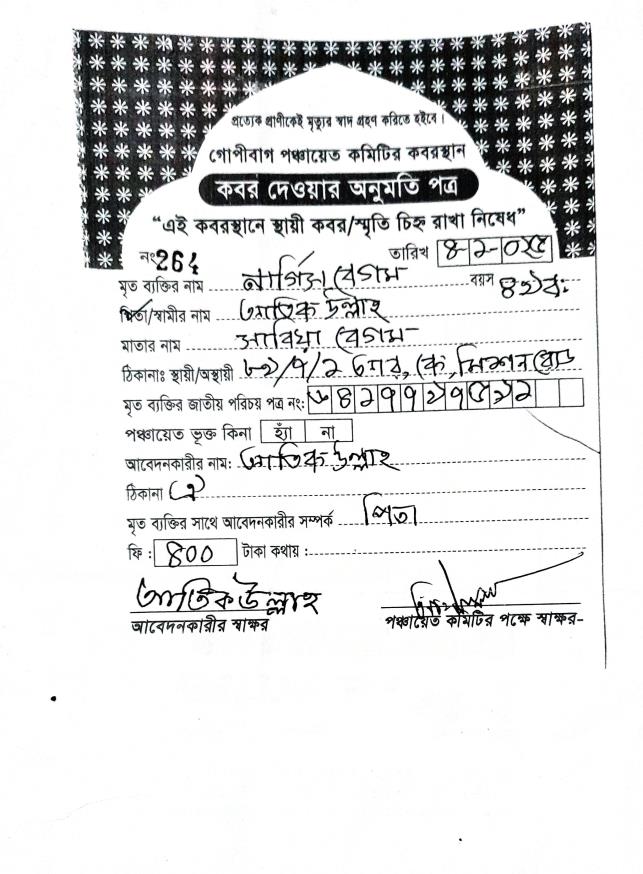 প্রত্যেক প্রাণীকেই মৃত্যুর স্বাদ গ্রহণ করিতে হইবে।
গোপীবাগ পঞ্চায়েত কমিটির কবরস্থান
কবর দেওয়ার অনুমতি পত্র
“এই কবরস্থানে স্থায়ী কবর/স্মৃতি চিহ্ন রাখা নিষেধ”
নং 264 তারিখ ৪-২-০২৫
মৃত ব্যক্তির নাম নার্গিস বেগম বয়স ৪১বঃ
পিতা/স্বামীর নাম আতিক উল্লাহ
মাতার নাম আবিয়া বেগম
ঠিকানাঃ স্থায়ী/অস্থায়ী ৮১/৭/২ আর, কে, মিশন রোড
মৃত ব্যক্তির জাতীয় পরিচয় পত্র নং: ৬৪২৭৭১৭৫১২
পঞ্চায়েত ভুক্ত কিনা হ্যাঁ না
আবেদনকারীর নাম: আতিক উল্লাহ
ঠিকানা ঐ
মৃত ব্যক্তির সাথে আবেদনকারীর সম্পর্ক পিতা
ফি : 400 টাকা কথায় :
আতিক উল্লাহ
আবেদনকারীর স্বাক্ষর পঞ্চায়েত কমিটির পক্ষে স্বাক্ষর-